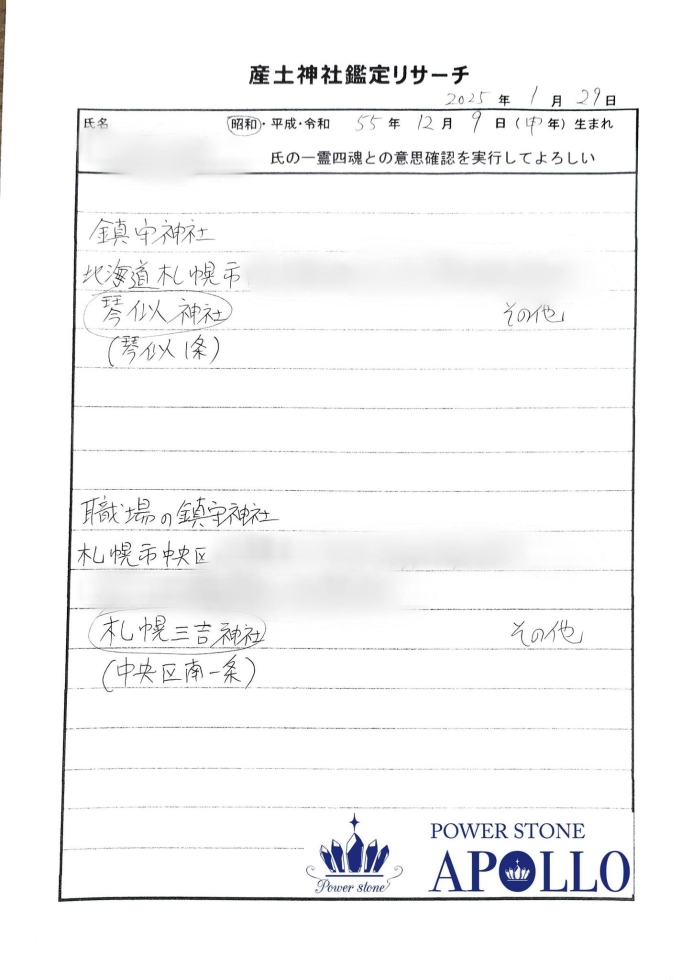 産土神社鑑定リサーチ
2025年 1月 29日
氏名 昭和・平成・令和 55年 12月 9日(申年)生まれ
氏の一霊四魂との意思確認を実行してよろしい
鎮守神社
北海道札幌市
琴似神社 その他
(琴似1条)
職場の鎮守神社
札幌市中央区
札幌三吉神社 その他
(中央区南一条)
Power stone
POWER STONE
APOLLO